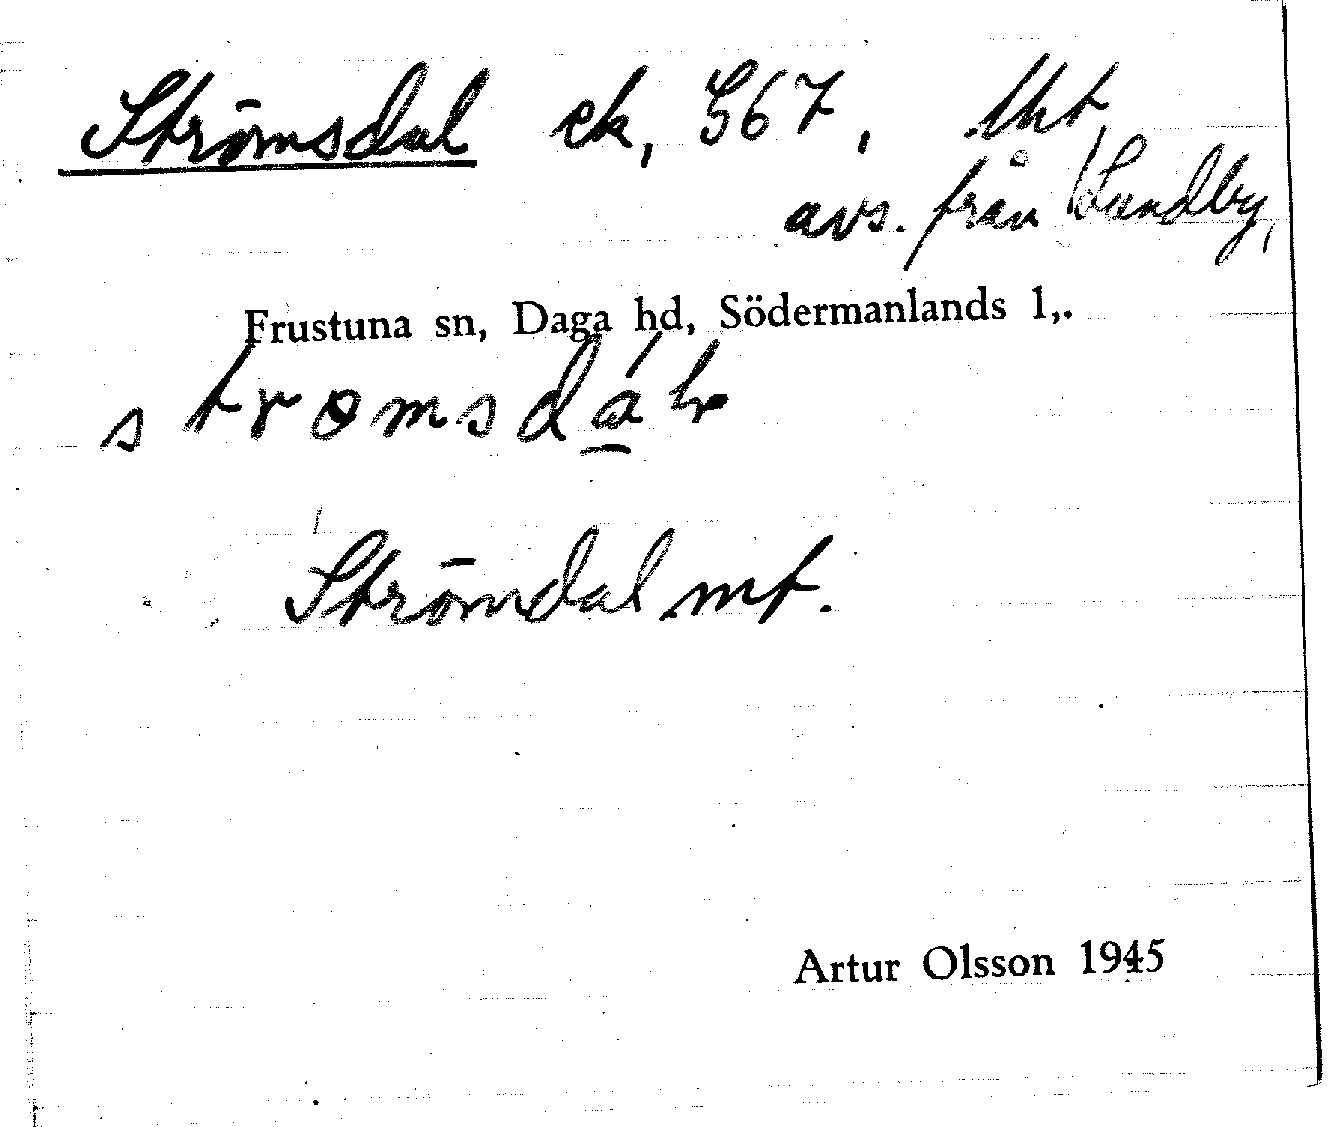 Strömsdal ek, S67, lht,
avs. från Lundby,
Frustuna sn, Daga hd, Södermanlands l,.
Strömdal mt.
Artur Olsson 1945